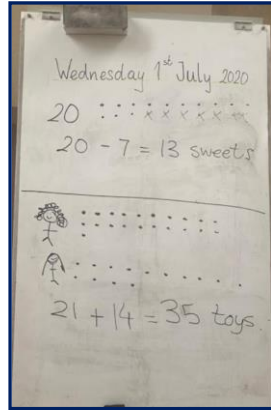 Wednesday 1st July 2020
20
20 - 7 = 13 sweets
21 + 14 = 35 toys